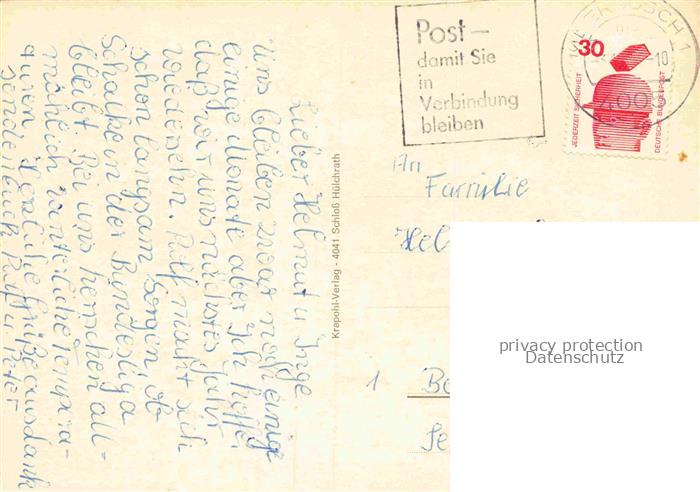 Lieber Helmut u. Inge
Uns bleiben zwar noch einige
einige Monate aber ich hoffe,
daß wir uns nächstes Jahr
wiedersehn. Ralf macht sich
schon langsam Sorgen, ob
Schalke in der Bundesliga
bleibt. Bei uns herrschen all=
mählich winterliche Tempera-
turen. Herzliche Grüße aus dank
senden euch Ralf u. Peter
Krapohl-Verlag - 4041 Schloß Hülchrath
Post –
damit Sie
in
Verbindung
bleiben
MEERBUSCH 1
-10
4005
30
JEDERZEIT SICHERHEIT
DEUTSCHE BUNDESPOST
An
Familie
Hel
1 Be
privacy protection
Datenschutz